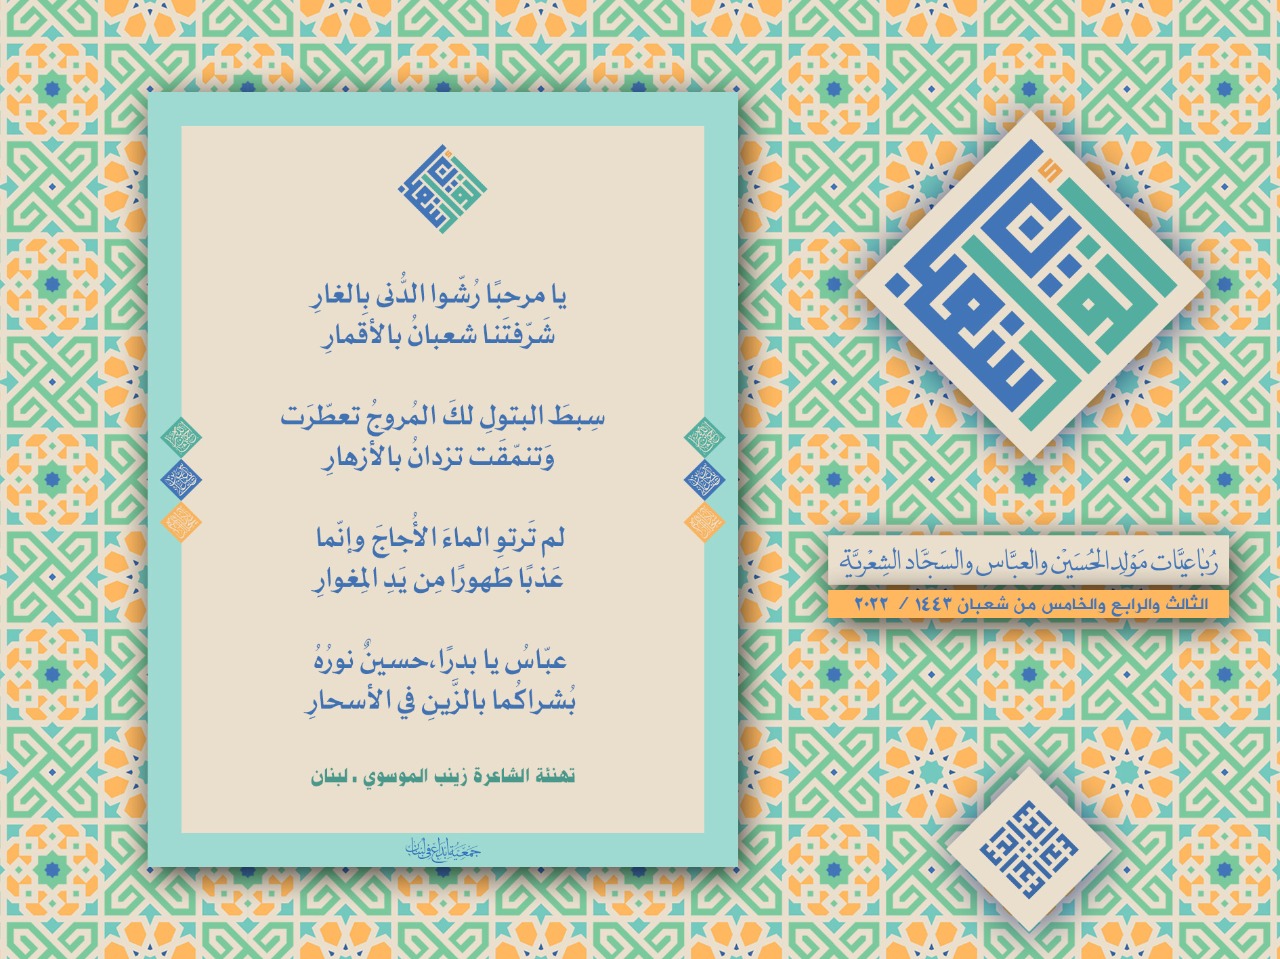 يا مرحبًا رُشّوا الدُّنى بِالغارِ
شَرّفتَنا شعبانُ بالأقمارِ
سِبطَ البتولِ لكَ المُروجُ تعطّرَت
وَتنمّقَت تزدانُ بالأزهارِ
لم تَرتوِ الماءَ الأُجاجَ وإنّما
عَذبًا طَهورًا مِن يَدِ المِغوارِ
عبّاسُ يا بدرًا،حسينٌ نورُهُ
بُشراكُما بالزَّينِ في الأسحارِ
تهنئة الشاعرة زينب الموسوي . لبنان
جَمعيّة إبداع في لبنان
رُبٰاعيَّات مَوْلِد الحُسَيْن والعبَّاس والسَجَّاد الشِعْريَّة
الثالث والرابع والخامس من شعبان ١٤٤٣ / ٢٠٢٢